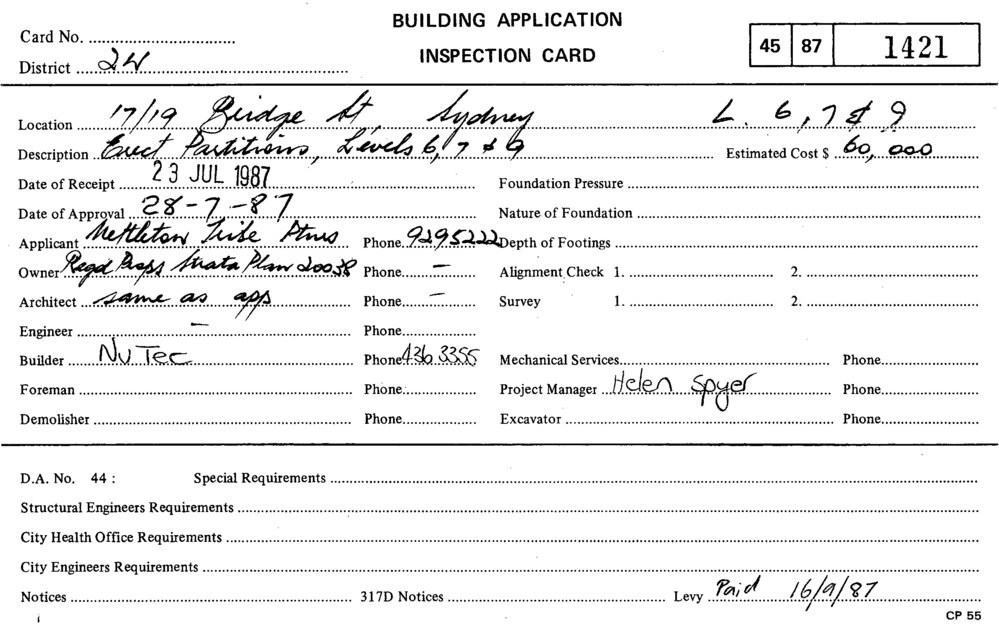 BUILDING APPLICATION
INSPECTION CARD
Card No.
District 2W
45 87 1421
Location 17/19 Bridge St, Sydney L. 6, 7 & 9
Description Erect Partitions, Levels 6, 7 & 9 Estimated Cost $ 60,000
Date of Receipt 23 JUL 1987 Foundation Pressure
Date of Approval 28-7-87 Nature of Foundation
Applicant Nettleton Tribe Ptnrs Phone. 9295222 Depth of Footings
Owner Regd Props Strata Plan 20038 Phone. – Alignment Check 1. 2.
Architect same as app Phone. – Survey 1. 2.
Engineer – Phone.
Builder NuTec Phone 4363355 Mechanical Services Phone
Foreman Phone. Project Manager Helen Spyer Phone
Demolisher Phone. Excavator Phone
D.A. No. 44 : Special Requirements
Structural Engineers Requirements
City Health Office Requirements
City Engineers Requirements
Notices 317D Notices Levy Paid 16/9/87
CP 55